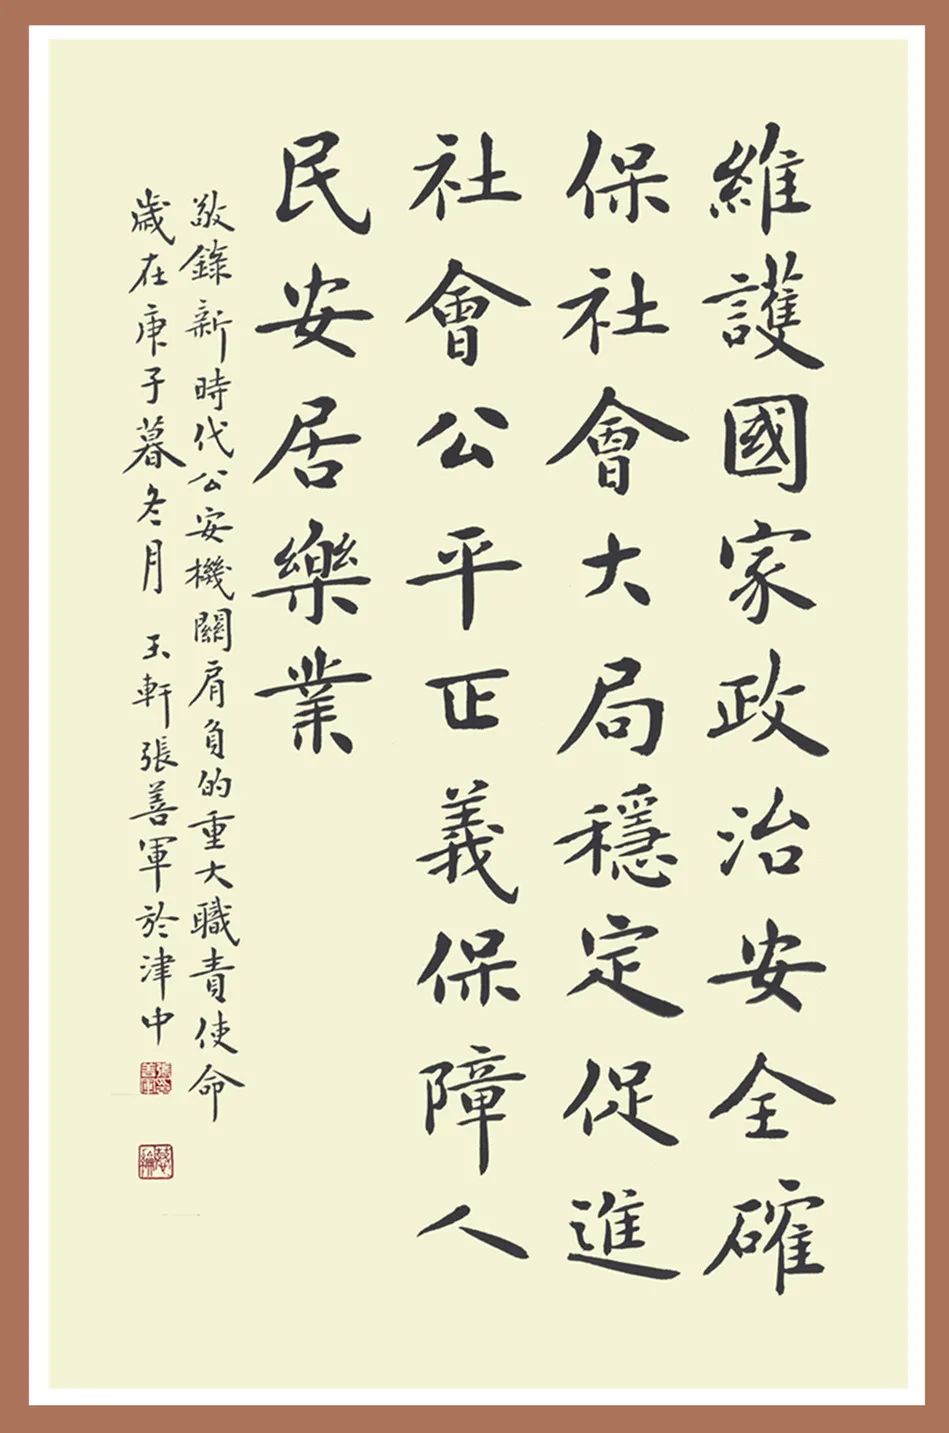 維護國家政治安全確
保社會大局穩定促進
社會公平正義保障人
民安居樂業
敬錄新時代公安機關肩負的重大職責使命
歲在庚子暮冬月 玉軒張善軍於津中